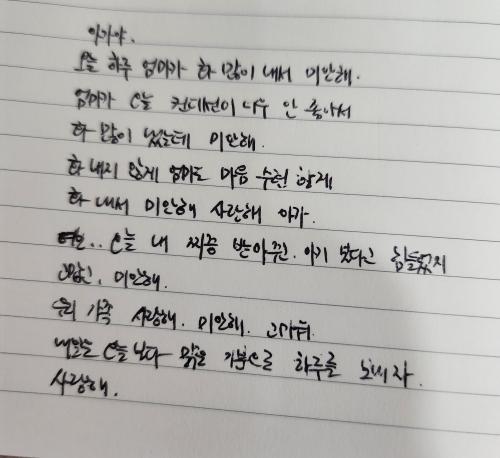 아가야.
오늘 하루 엄마가 화 많이 내서 미안해.
엄마가 오늘 컨디션이 너무 안 좋아서
화 많이 냈는데 미안해.
화 내지 않게 엄마도 마음 수련 할게
화 내서 미안해 사랑해 아가.
오늘 내 짜증 받아주고. 아기 본다고 힘들었지
고맙고, 미안해.
우리 가족 사랑해. 미안해. 고마워.
내일은 오늘보다 맑은 기분으로 하루를 보내자.
사랑해.